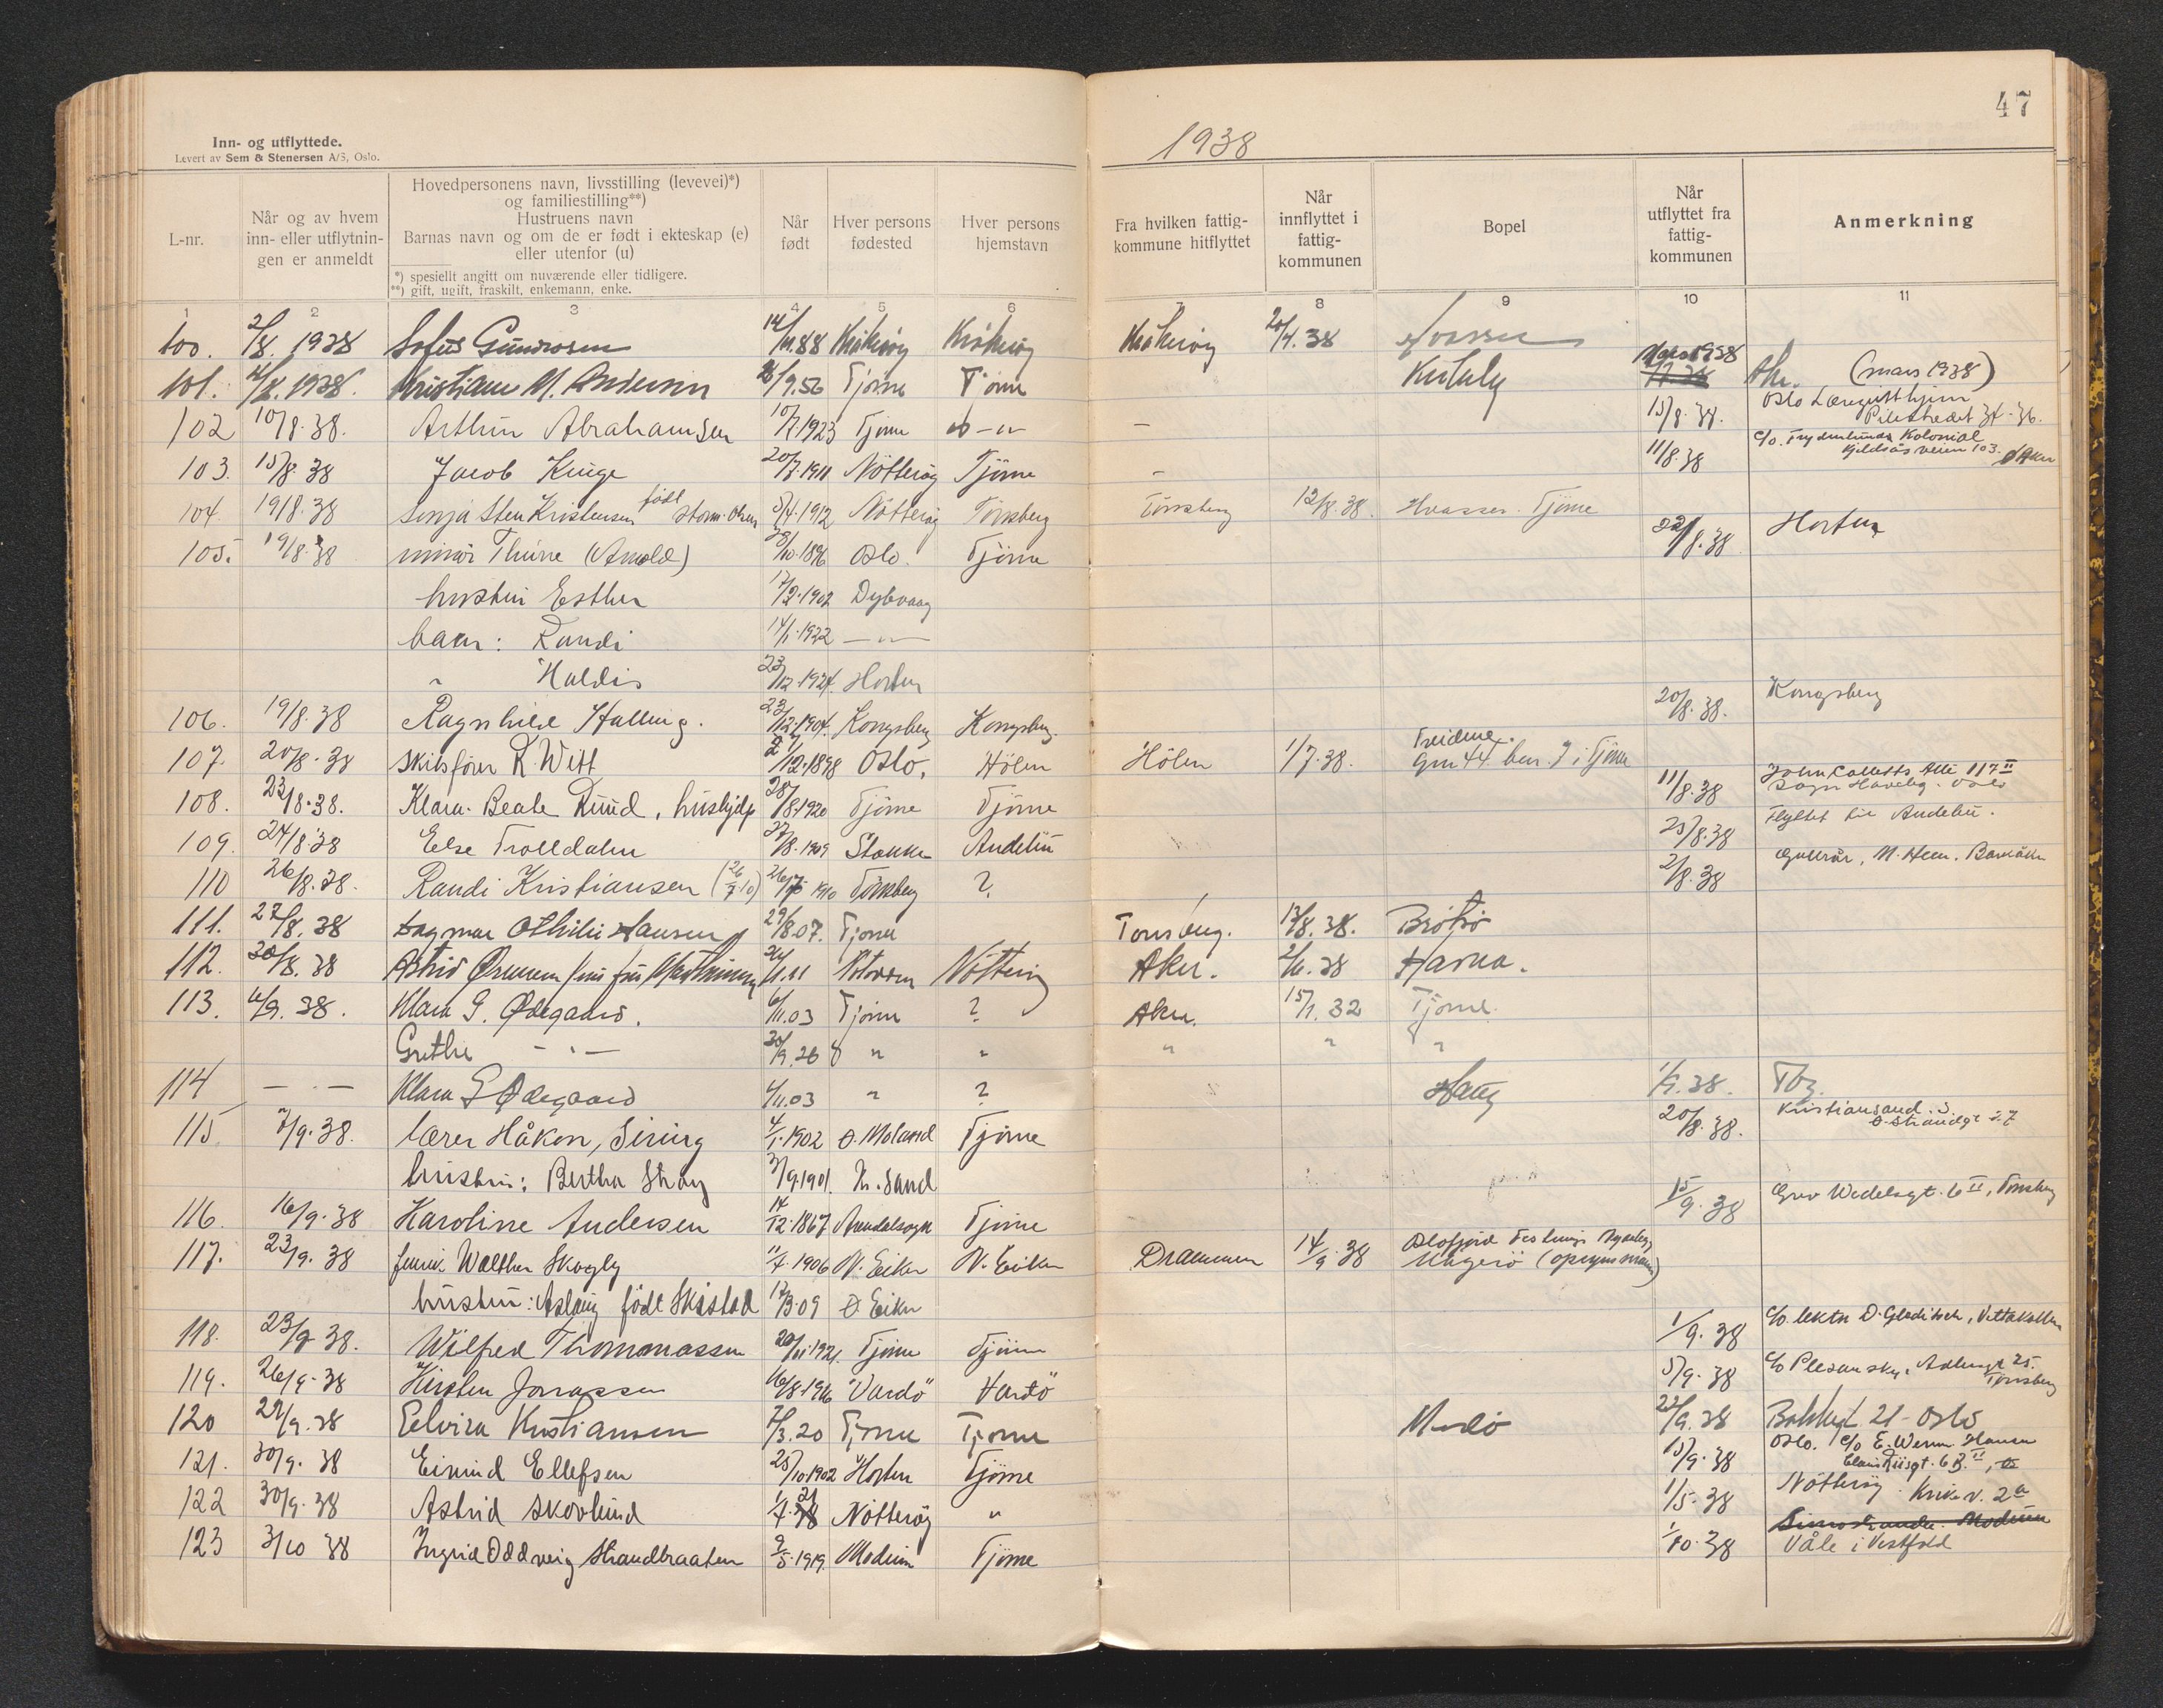 47
1938
Inn- og utflyttede.
Levert av Sem & Stenersen A/S, Oslo.
L-nr.
Når og av hvem inn- eller utflytnin- gen er anmeldt
Hovedpersonens navn, livsstilling (levevei)*)
og familiestilling**)
Hustruens navn
Barnas navn og om de er født i ekteskap (e)
eller utenfor (u)
*) spesiellt angitt om nuværende eller tidligere.
**) gift, ugift, fraskilt, enkemann, enke.
Når født
Hver persons fødested
Hver persons hjemstavn
Fra hvilken fattig- kommune hitflyttet
Når innflyttet i fattig- kommunen
Bopel
Når utflyttet fra fattig- kommunen
Anmerkning
1 2 3 4 5 6 7 8 9 10 11
100. 2/8. 1938 Sofus Gundrosen 88 Kråkerøy Kråkerøy Kråkerøy 20/4.38
101. 1938. Kristiane M. Andersen 9.56 Tjöme Tjöme Mars 1938 (mars 1938)
102 10/8.38. Arthur Abrahamsen 10/7 1923 Tjöme do -"- - 15/8.38. Oslo Pilestredet 34-36.
103. 15/8.38 Jacob Kruge 20/7.1911 Nötteröy Tjöme - 11/8.38 c/o. Kolonial 103. Aker
104. 19/8.38 Sonja Sten Kristensen født Storm-Olsen 5/4.1912 Nötteröy Tönsberg Tönsberg 12/8.38. Hvasser. Tjöme
105. 19/8.38 minör Thune (Arnold) 10.1896 Oslo. Tjöme 22/8.38 Horten
hustru Esther 17/2.1902 Dybvaag
barn: Randi 14/1.1922 -"-
" Haldis 23/12.1924. Horten
106. 19/8.38 Ragnhild Halling. 23/12.1904. Kongsberg Kongsberg. 20/8.38. Kongsberg
107. 20/8.38 skibsfører R. Witt 12.1898 Oslo. Hölen Hölen 1/7.38. Treidene. Gnr 44 bnr. 9 i Tjöme
108. 23/8.38. Klara Beate Ruud, hushjelp 28/8 1920 Tjöme Tjöme 11/8.38 John Colletts Alle 117 II Sogn Haveby. Oslo
109. 24/8.38 Else Trolldalen 27/8.1909 Stokke Andebu 25/8.38 Flyttet til Andebu.
110 26/8.38. Randi Kristiansen (26/7 10) 1910 Tönsberg ? 2/8.38
111. 27/8.38 Dagmar Othilie Hansen 29/8.07. Tjöme Tönsberg. 13/8.38. Brötsö
112. 30/8.38 Astrid 11 Nötteröy Aker. 38
113. 9.38. Klara G. Ødegaard. 6/11.03 Tjöme ? Aker. 15/1.32 Tjöme.
Grethe - " - 30/9.26 " " " " "
114 - " - Klara G Ødegaard 6/11.03 " ? Haug 38. Tbg.
115 7/9.38. lærer Håkon, Siring 4/1.1902 ø. Moland Tjöme 20/8.38. Kristiansand. S
hustru: Bertha Stray 3/9.1901. Kr. Sand
116. 16/9.38 Karoline Andersen 14/12.1867 Arendalsogn Tjöme 15/9.38 Grev Wedelsgt. 6 II, Tönsberg
117. 23/9.38 Walther Skogly 11/4.1906 N. Eiker N. Eiker Drammen 14/9.38 Oslofjord Festnings Mågerö (opsynsmann)
hustru: Aslaug födt Skistad 12/3.09 Ö Eiker
118. 23/9 38. Wilfred Thommassen 20/11.1921. Tjöme Tjöme 1/9.38 c/o. lektor D. Gleditsch, Vettakollen
119. 26/9.38 Kirsten Jonassen 16/8.1916 Vardö Vardö 5/9.38 c/o Plesansky, Tönsberg
120 29/9.38 Elvira Kristiansen 7/3.20 Tjöme Tjöme 22/9.38 21 - Oslo
121. 30/9.38 Eivind Ellefsen 25/10.1902 Horten Tjöme 15/9.38 Oslo. c/o E. Werm. Hansen Claus Riisgt. 6 B. II
122 30/9.38 Astrid Skovlund 1/4.21 Nötteröy " 1/5.38 Nötteröy. 2 a
123 3/10 38 Ingrid Oddveig Strandbraaten 2/5.1919. Modum Tjöme 1/10.38 Modum Våle i Vestfold